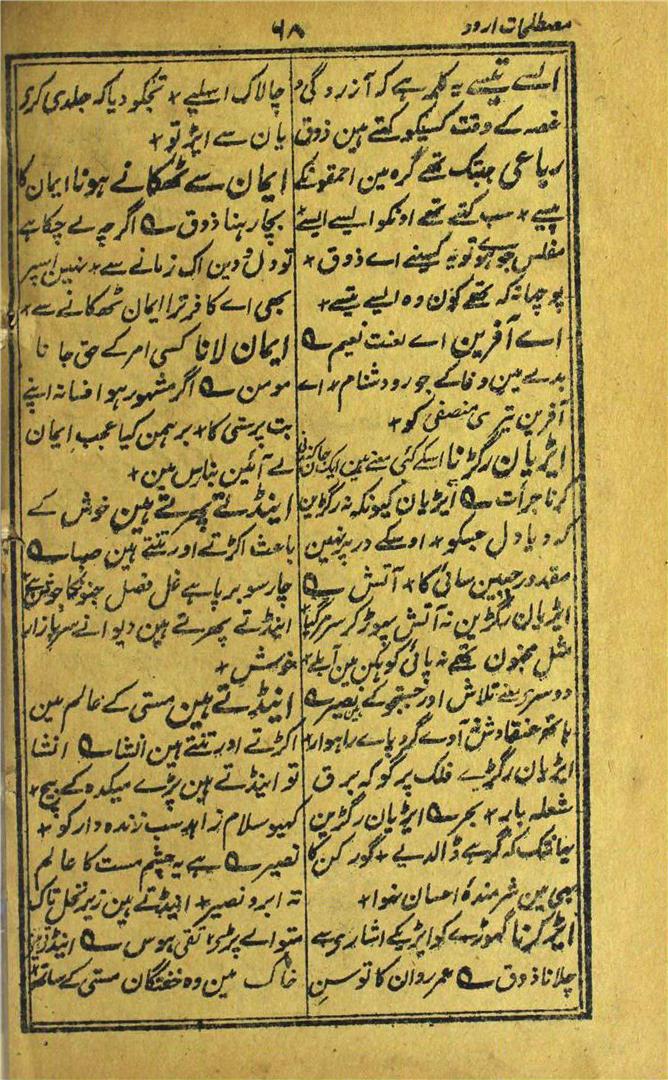 مصطلحات اردو
۶۸
ایسے تیسے یہ کلمہ ہے کہ آزردگی و
غصہ کے وقت کسیکو کہتے ہین ذوق
رباعی جبتک تھے گرہ مین احمقونکے
پیسے * سب کہتے تھے اونکو ایسے ایسے
مفلس جو ہوے تو یہ کسینے اے ذوق *
پوچھا نہ کہ تھے کون وہ ایسے تیسے *
اے آفرین اے لعنت نعیم ے
بدلے مین وفا کے جور و دشنام * اے
آفرین تیری منصفی کو *
ایڑیان رگڑنا اسکے کئی معنے ہین ایک جانکنی
کرنا جرأت ے ایڑیان کیونکہ نہ رگڑین
کہ دیا دل جسکو * اوسکے در پر نہین
مقدور جبین سائی کا * آتش ے
ایڑیان رگڑین نہ آتش پھوڑ کر سر مر گیا
مثل مجنون تھے نہ پائی کوہکن مین آبلے *
دوسری معنے تلاش اور جستجو کے نصیر ے
ہاتھ عنقا وش نہ آوے گرد پاے راہوار *
ایڑیان رگڑے فلک پر گو کہ برق
شعلہ بار * بحر ے ایڑیان رگڑین
یہانتک کہ گڑہے ڈالدیے * گورکن کا
بھی مین شرمندہ احسان نہوا *
ایڑ کرنا گھوڑے کو ایڑ کے اشارے سے
چلانا ذوق ے عمر روان کا توسن
چالاک اسلیے * تجکو دیا کہ جلدی کرے
یان سے ایڑ تو *
ایمان سے ٹھکانے ہونا ایمان کا
بجا رہنا ذوق ے اگرچہ لے چکا ہے
تو دل و دین اک زمانے سے * نہین اسپر
بھی اے کافر ترا ایمان ٹھکانے سے *
ایمان لانا کسی امر کے حق جاننا
مومن ے اگر مشہور ہو افسانہ اپنے
بت پرستی کا * برہمن کیا عجب ایمان
لے آئین بنارس مین *
اینڈتے پھرتے ہین خوش کے
باعث اکڑتے اور تنتے ہین صبا ے
چار سو برپا ہے غل فصل جنون کا جوش ہے
اینڈتے پھرتے ہین دیوانے سر بازار
خوش *
اینڈتے ہین مستی کے عالم مین
اکڑتے اور تنتے ہین انشا ے انشا
تو اینڈتے ہین پڑے میکدہ کے بیچ *
کہیو سلام زاہد شب زندہ دار کو *
نصیر ے ہے یہ چشم مست کا عالم
تہ ابرو نصیر * اینڈتے ہین زیر نخل تاک
متوالے پڑے * تقی ہوس ے اینڈتے زیر
خاک مین وہ خفتگان مستی کے ساتھ *